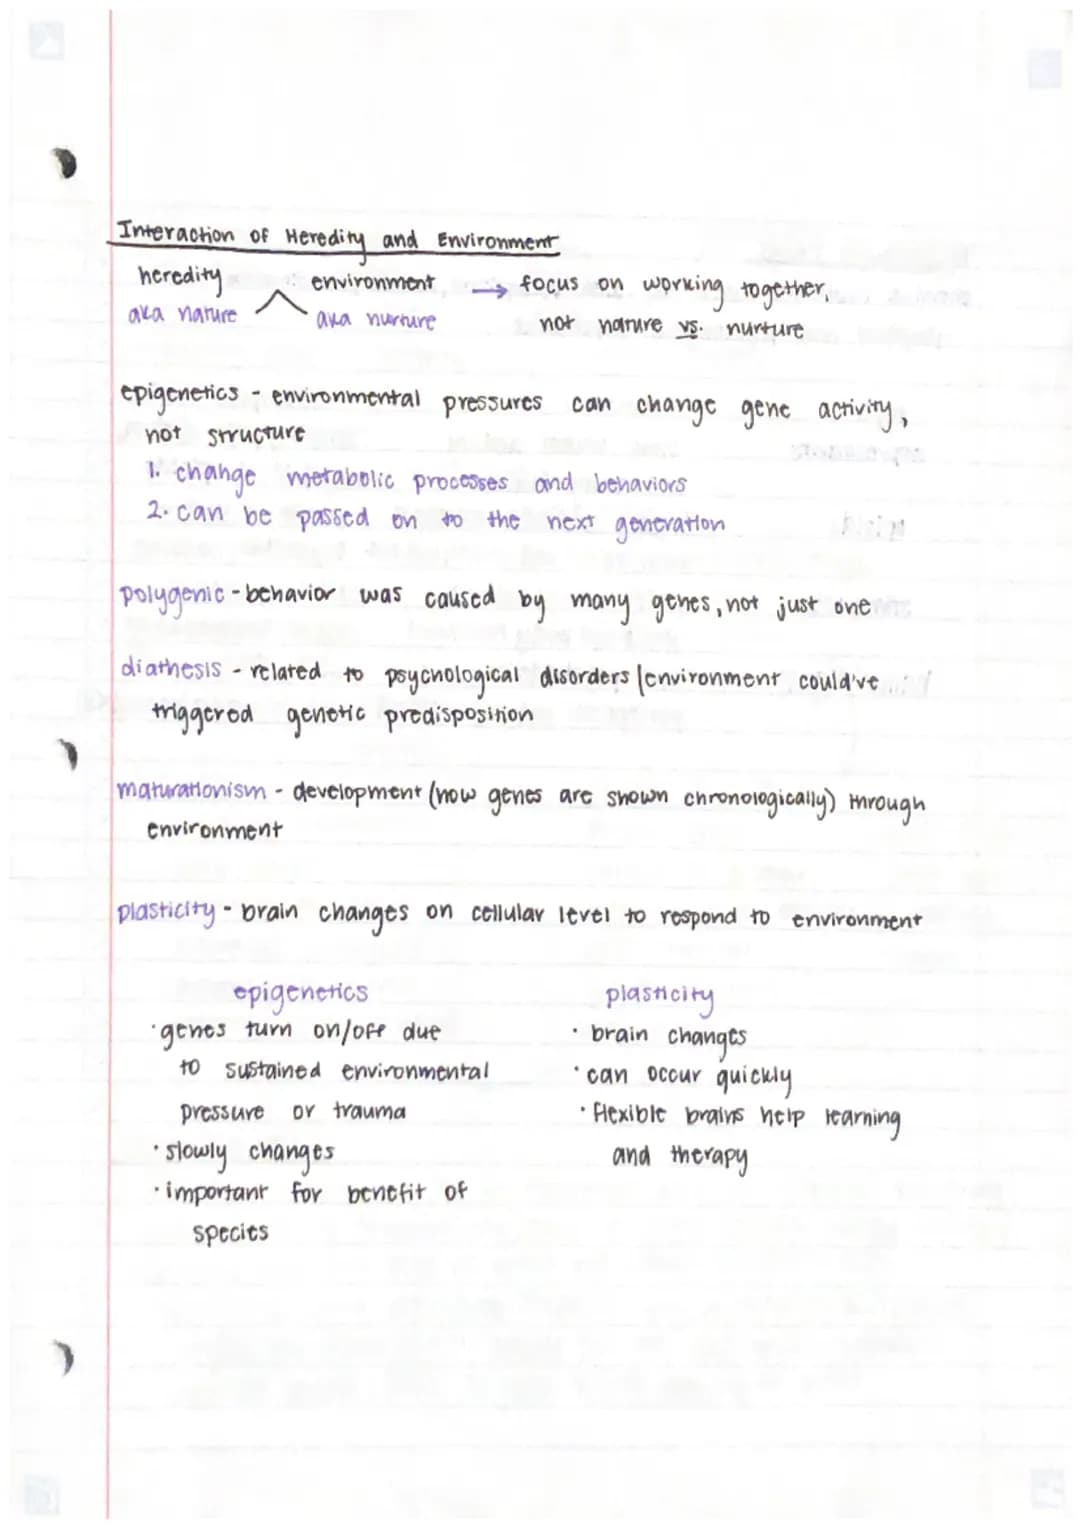 Interaction of Heredity and Environment
heredity environment → focus on working together,
aka nature aka nurture not nature vs. nurture
epigenetics - environmental pressures can change gene activity,
not structure
1. change metabolic processes and behaviors
2. can be passed on to the next generation
polygenic - behavior was caused by many genes, not just one
diathesis - related to psychological disorders / environment could've
triggered genetic predisposition
maturationism - development (how genes are shown chronologically) through
environment
plasticity - brain changes on cellular level to respond to environment
epigenetics plasticity
· genes turn on/off due · brain changes
to sustained environmental · can occur quickly
pressure or trauma · flexible brains help learning
· slowly changes and therapy
· important for benefit of
species